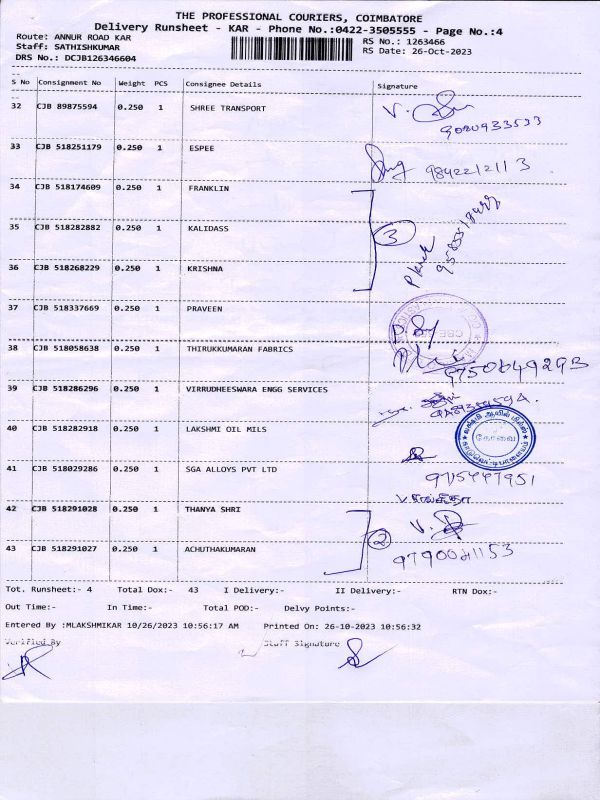 THE PROFESSIONAL COURIERS, COIMBATORE
Delivery Runsheet - KAR - Phone No.:0422-3505555 - Page No.:4
Route: ANNUR ROAD KAR RS No.: 1263466
Staff: SATHISHKUMAR RS Date: 26-Oct-2023
DRS No.: DCJB126346604
S No Consignment No Weight PCS Consignee Details Signature
32 CJB 89875594 0.250 1 SHREE TRANSPORT
33 CJB 518251179 0.250 1 ESPEE
9842212113
34 CJB 518174609 0.250 1 FRANKLIN
35 CJB 518282882 0.250 1 KALIDASS
3
36 CJB 518268229 0.250 1 KRISHNA
37 CJB 518337669 0.250 1 PRAVEEN
38 CJB 518058638 0.250 1 THIRUKKUMARAN FABRICS
9750649293
39 CJB 518286296 0.250 1 VIRRUDHEESWARA ENGG SERVICES
40 CJB 518282918 0.250 1 LAKSHMI OIL MILS
கோவை
41 CJB 518029286 0.250 1 SGA ALLOYS PVT LTD
42 CJB 518291028 0.250 1 THANYA SHRI
2
43 CJB 518291027 0.250 1 ACHUTHAKUMARAN
9790041153
Tot. Runsheet:- 4 Total Dox:- 43 I Delivery:- II Delivery:- RTN Dox:-
Out Time:- In Time:- Total POD:- Delvy Points:-
Entered By :MLAKSHMIKAR 10/26/2023 10:56:17 AM Printed On: 26-10-2023 10:56:32
Verified By Staff Signature